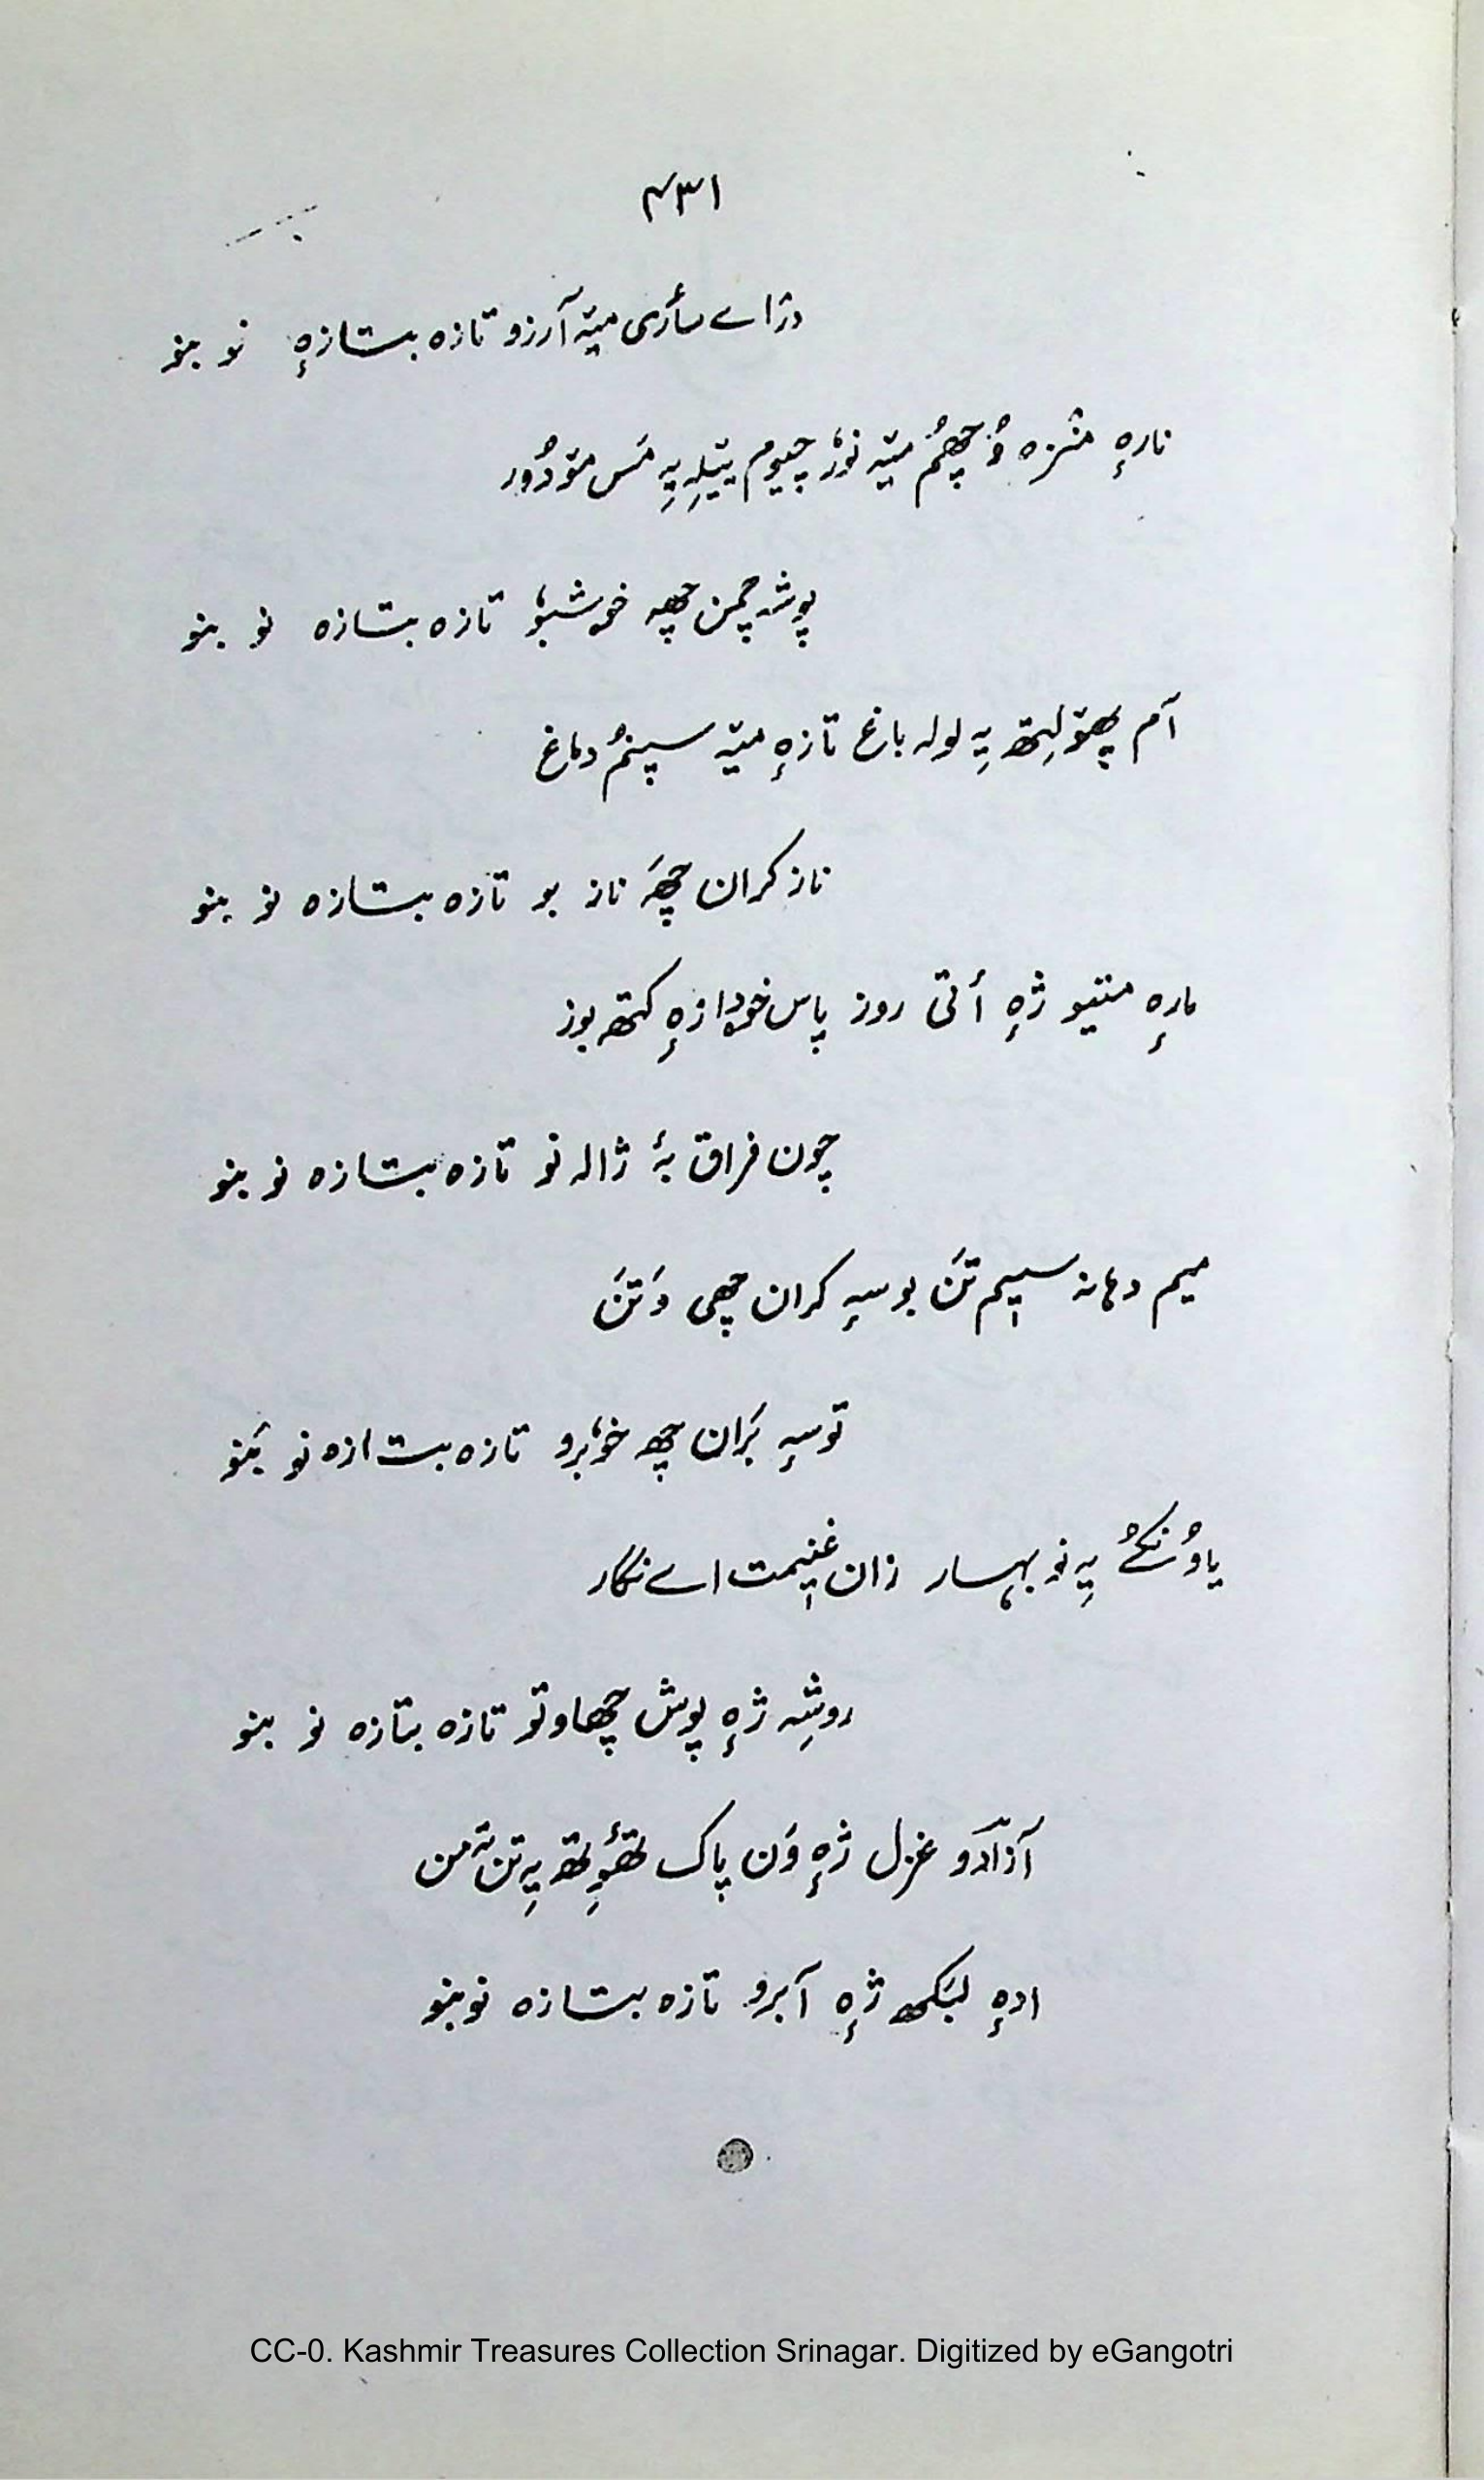 ۴۳۱
دژاے سأری میٚہ آرزو تازہ بتازہٕ نو بنو
نارٕہ منٛزہ وُچھُم میٚہ نوٗر چیوم یتیلہِ یہِ مَس متو دُور
پوشہ چمن چھہ خوشبوٗ تازہ بتازہ نو بنو
آم پھۄلِتھ یہِ لولہ باغ تازہٕ میٚہ سپنُم دماغ
ناز کران چھَہ ناز بو تازہ بتازہ نو بنو
مارٕہ متیو ژٕہ أتی روز پاس خودا زٕہ کتھ بوز
چون فراق بۂ ژالہ نو تازہ بتازہ نو بنو
میم دہانہ سیٖم تَن بوسہٕ کران چھی وَتَن
توسہٕ بَران چھ خوٗبرو تازہ بتازہ نو بَنو
یاوُنکُے یہِ نو بہار زان غنیٖمت اے نگار
روشِہ ژٕہ پوش چھاوتو تازہ بتازہ نو بنو
آزادو غزل ژٕہ وَن پاک تھٔوِتھ یہِ تن تہٕ من
ادٕہ لبَکھ ژٕہ آبرو تازہ بتازہ نو بنو
CC-0. Kashmir Treasures Collection Srinagar. Digitized by eGangotri